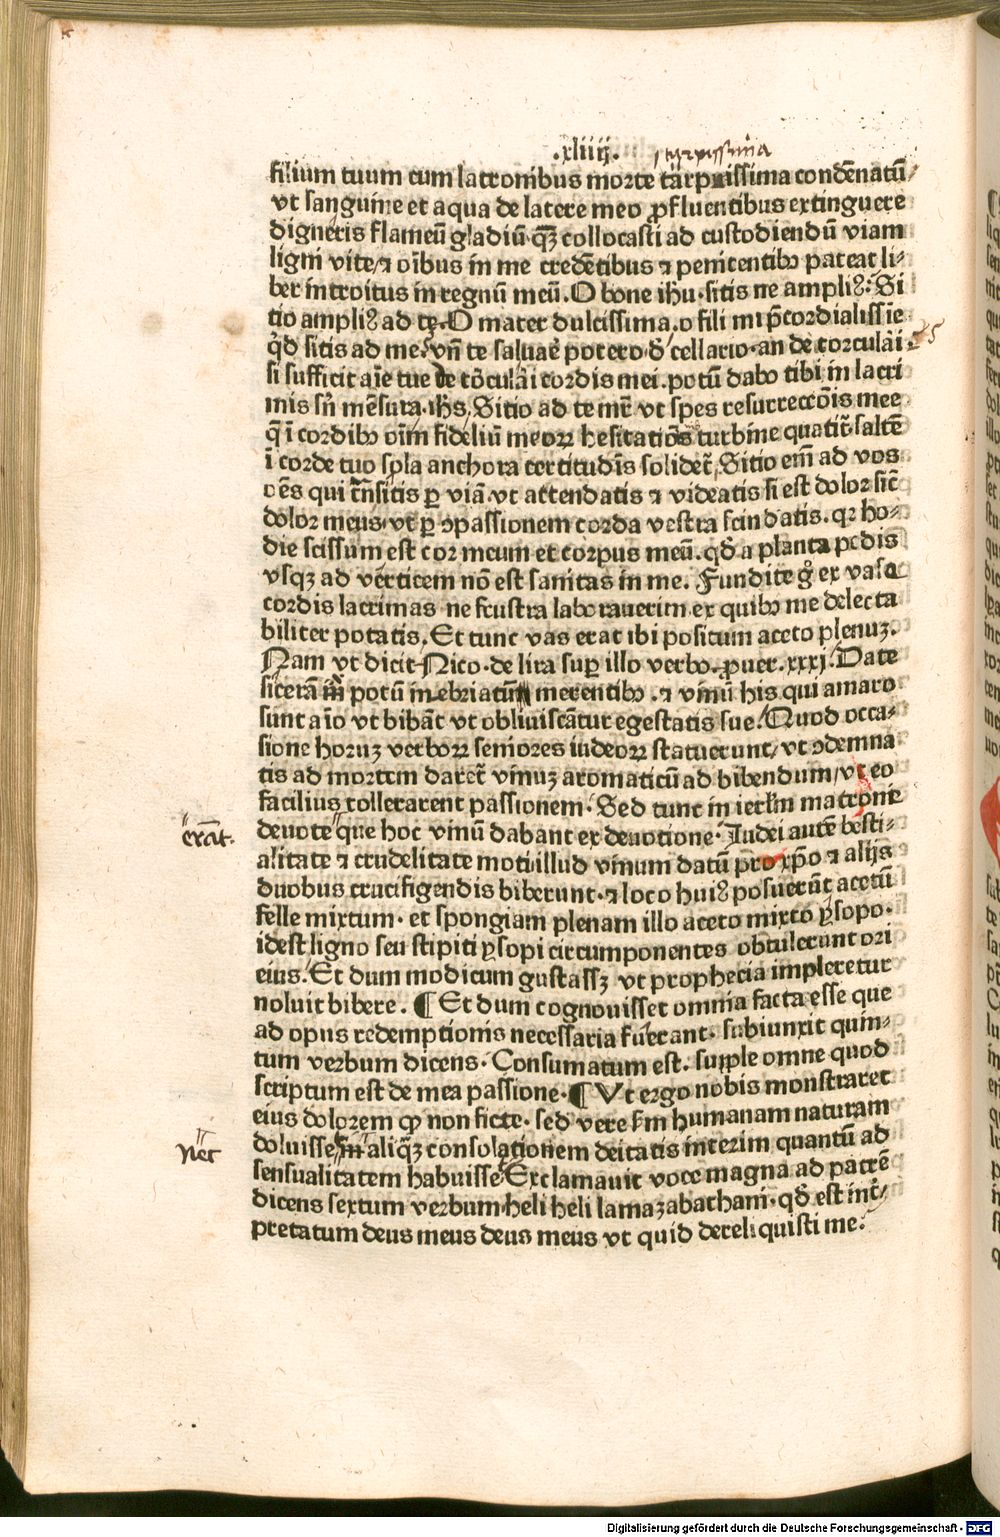 .xliiij. turpissima
filium tuum cum latronibus morte tarpuissima condēnatū/
vt sanguine et aqua de latere meo ꝓfluentibus extinguere
digneris flameū gladiū·qȝ collocasti ad custodiendū viam
ligni vite/⁊ oībus in me credētibus ⁊ penitentibꝯ pateat li⸗
ber introitus in regnū meū. O bone ihū·sitis ne ampliꝰ: Si
tio ampliꝰ ad te. O mater dulcissima.o fili mi p̄cordialissīe
qd̓ sitis ad me. vn̄ te saluaē potero·d̓ cellario·an de torculāi.
si sufficit aīe tue de tōculāi cordis mei.potū dabo tibi in lacri
mis sn̄ mēsura·ihs, Sitio ad te mr̄ vt spes resurrecctōis mee
q̄ ī cordibꝯ oīm fideliū meoꝝ hesitatiōs turbine quatit̄·saltē
ī corde tuo spīa anchora certitudīs solidet̄, Sitio em̄ ad vos
oēs qui trāsitis ꝑ viā.vt attendatis ⁊ videatis si est dolor sic̄
dolor meus/vt ꝑ ꝯpassionem corda vestra scindatis.qꝛ ho⸗
die scissum est cor meum et corpus meū.qd̓ a planta pedis
vsqȝ ad verticem nō est sanitas in me. Fundite gͦ ex vasa
cordis lacrimas ne frustra laborauerim.ex quibꝯ me delecta
biliter potatis. Et tunc vas erat ibi positum aceto plenuȝ.
Nam vt dicit Nico·de lira suꝑ illo verbo. ꝓuer.xxxj. Date
sicerā potū inebriatū merentibꝯ.⁊ vinū his qui amaro
sunt aīo vt bibāt vt obliuiscātur egestatis sue. Quod occa⸗
sione horuȝ verboꝝ seniores iudeoꝝ statuerunt/vt ꝯdemna
tis ad mortem daret̄ vinuȝ aromaticū ad bibendum/vt eo
facilius tollerarent passionem. Sed tunc in ierl̄m matrone
erāt.
deuote que hoc vinū dabant ex deuotione. Iudei autē besti⸗
alitate ⁊ crudelitate moti illud vinum datū pro xp̄o ⁊ alijs
duobus crucifigendis biberunt·⁊ loco huiꝰ posuerūt acetū
felle mixtum· et spongiam plenam illo aceto mixto ysopo·
idest ligno seu stipiti ysopi circumponentes obtulerunt ori
eius. Et dum modicum gustassȝ vt prophecia impleretur
noluit bibere. ¶ Et dum cognouisset omnia facta esse que
ad opus redemptionis necessaria fuerant. subiunxit quin⸗
tum verbum dicens. Consumatum est. supple omne quod
scriptum est de mea passione. ¶ Vt ergo nobis monstraret
eius dolorem ꝙ non ficte. sed vere ẜm humanam naturam
nec
doluisse aliqȝ consolationem deitatis interim quantū ad
sensualitatem habuisse Exclamauit voce magna ad patrē
dicens sextum verbum·heli heli lamazabathani·qd̓ est int̄⸗
pretatum deus meus deus meus vt quid dereliquisti me.
Digitalisierung gefördert durch die Deutsche Forschungsgemeinschaft - DFG